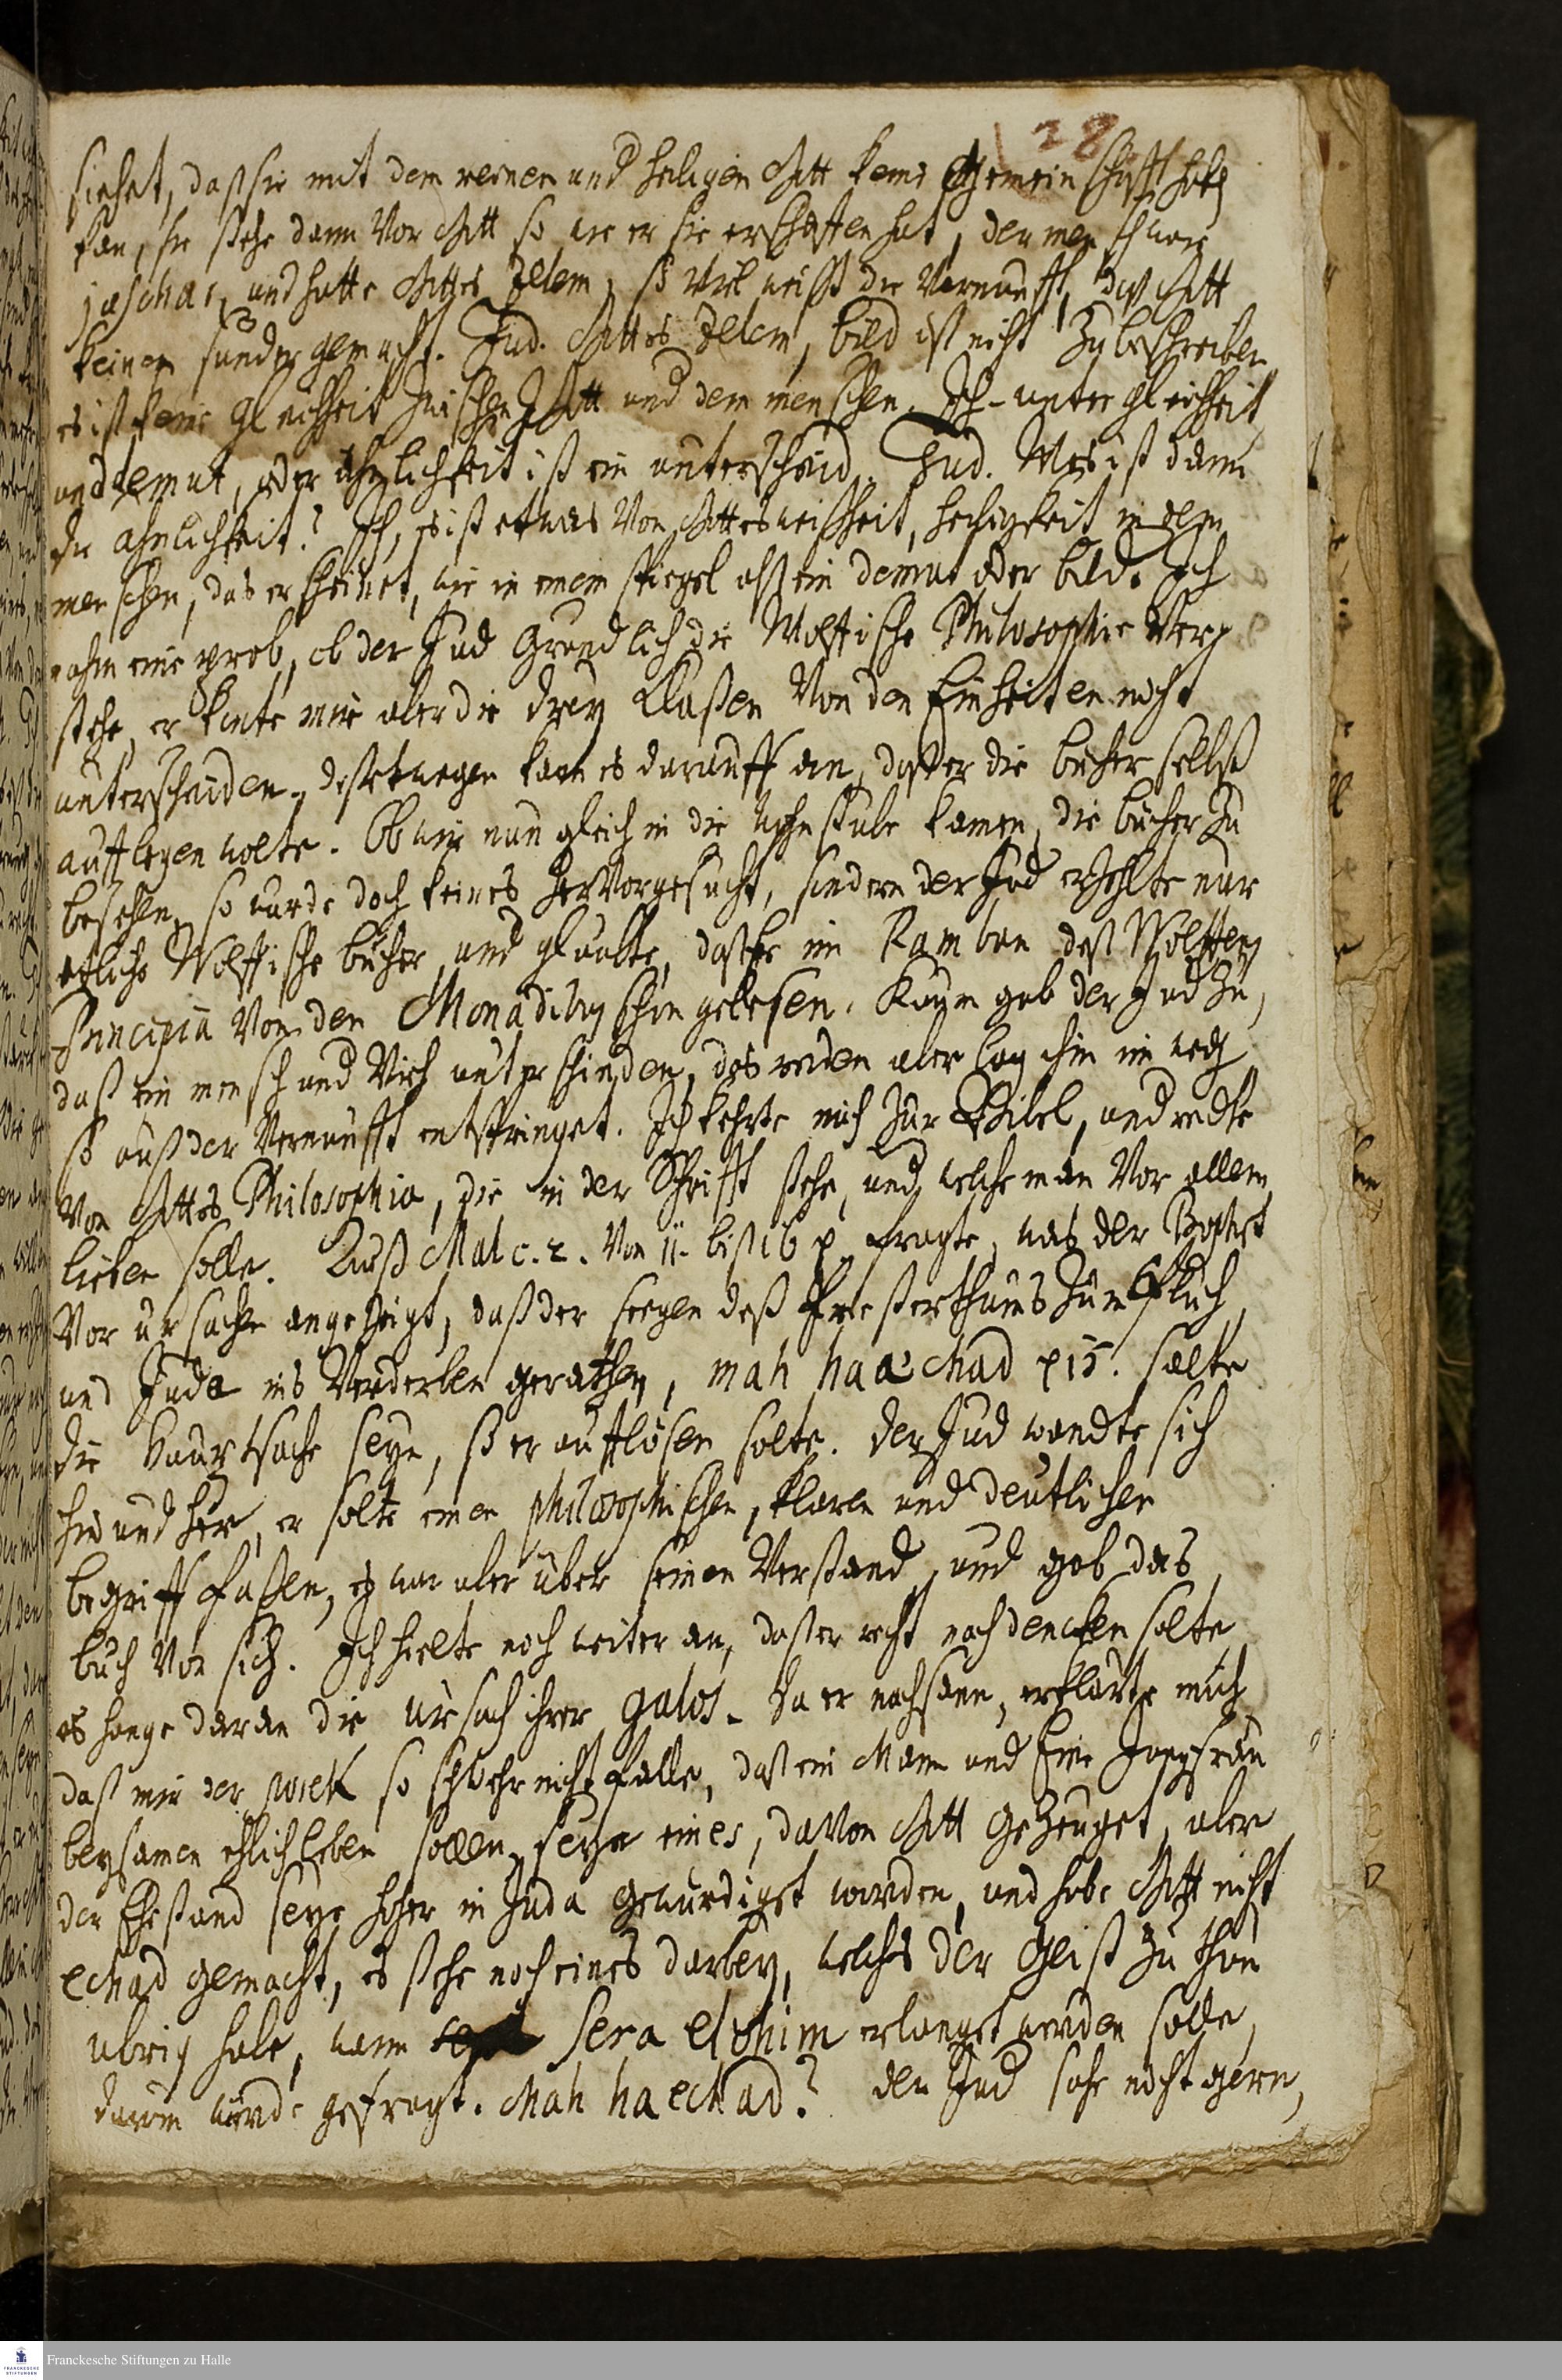 28
siehet, daß sie mit dem reinen und heiligen Gott keine Gemeinschafft haben
kan, sie stehe dann vor Gott so wie er sie erschaffen hat, der mensch ware
jaschar, und hatte Gottes Zelem, so viel weist die Vernunfft, daß Gott
keinen sunder gemacht. Jud. Gottes Zelem, bild ist nicht zu beschreiben
es ist keine gleichheit zwischen Gott und dem menschen. Ich - unter gleichheit
und demut, oder ähnlichkeit ist ein unterscheid. Jud. Was ist dann
die ahnlichkeit? Ich, es ist etwas von Gottes weißheit, heiligkeit in dem
menschen, das erscheinet, wie in einem spiegel alß ein demut oder bild. Ich
nahm eine prob, ob der Jud Grundlich die Wolffische Philosophie ver-
stehe, er konte mir aber die drey Claßen von den Einheiten nicht
unterscheiden, deßetwegen kam es darauff an, daß er die bücher selbst
aufflegen wolte. Ob wir nun gleich in die stube kamen, die bücher zu
besehen, so wurde doch keines hervorgesucht, sondern der Jud erzehlte nur
etliche Wolffische bücher und glaubte, daß er im Ramban deß Wolffen
Principia von den Monadibus schon gelesen. Kaum gab der Jud zu,
daß ein mensch und Vieh unterschieden, das reden aber lag ihm im weg
so auß der Vernunfft entspringet. Ich kehrte mich zur Bibel, und redte
von Gottes Philosophia, die in der Schrifft stehe, und welche man vor allem
lieben solle. Luß Mal c. 2. von 11. biß 16 p fragte, was der Prophet
vor ursache angezeigt, daß der seegen deß Priesterthums zum Fluch,
und Juda ins Verderben gerathen, mah haachad p 15. solte
die Hauptsache seyn, so er aufflösen solte. Der Jud wandte sich
hin und her, er solte einen philosophischen, klaren und deutlichen
begriff faßen, es war aber über seinen Verstand, und gab das
buch von sich. Ich hielte noch weiter an, daß er recht nachdencken solte
es hange daran die ursach ihrer galos. Da er nachsann, erklärte mich
daß mir der so schwehr nicht falle, daß ein Mann und Eine Jungfrau
beysamen ehlich leben sollen, seye eines, davon Gott gezeuget, aber
der Ehestand seye höher in Juda gewürdiget worden, und habe Gott nicht
echad gemacht, es stehe noch eines darbey, welches der Geist zu thun
ubrig habe, wann sera elohim erlanget werden solle,
darum würde gefragt. Mah haechad? der Jud sahe nicht gern,
Franckesche Stiftungen zu Halle